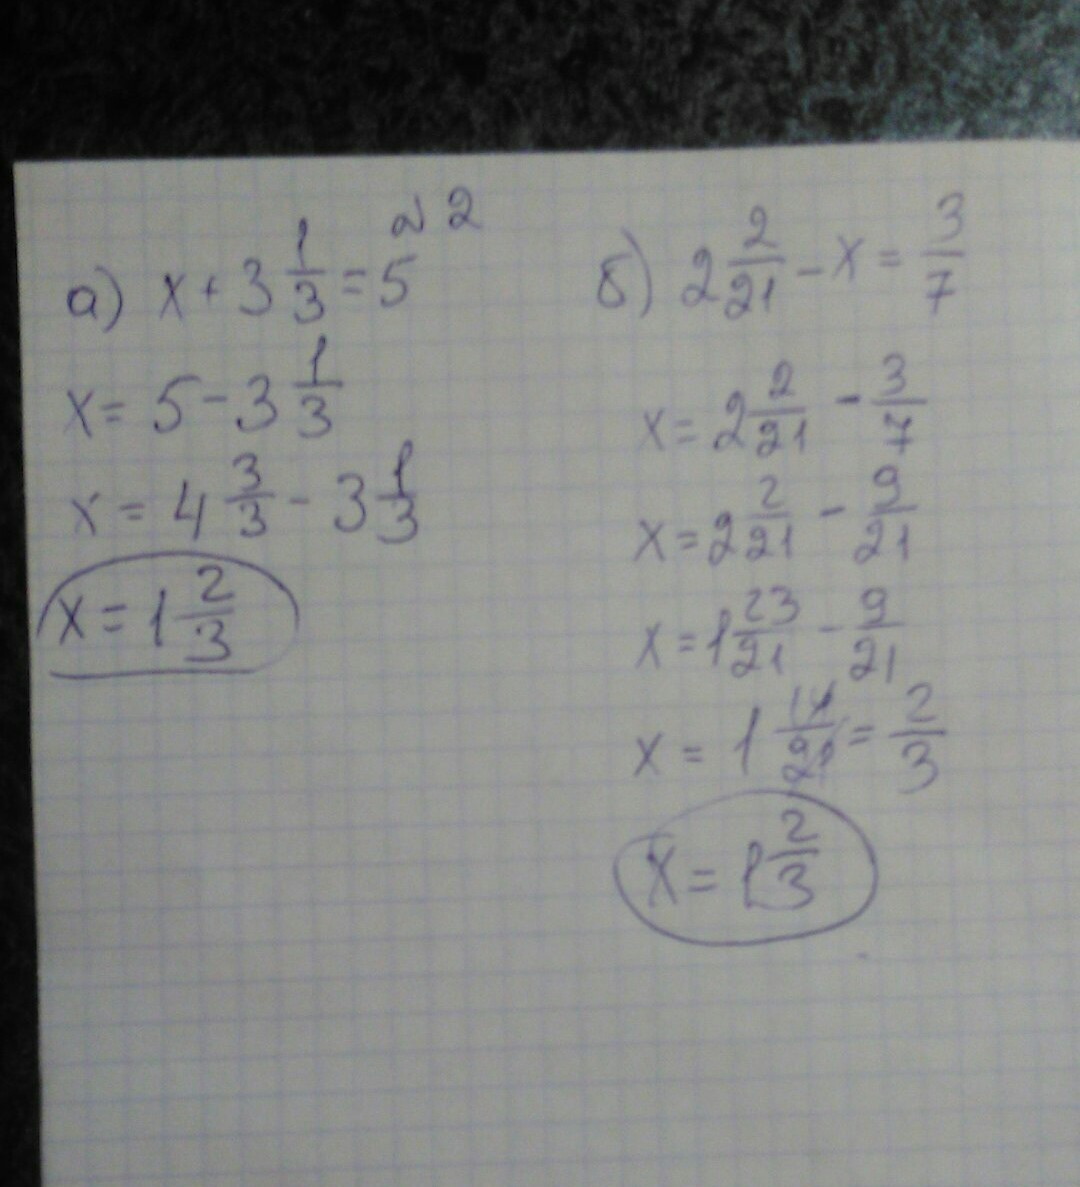 ~ 2
а) x + 3 1/3 = 5
x = 5 - 3 1/3
x = 4 3/3 - 3 1/3
x = 1 2/3
б) 2 2/21 - x = 3/7
x = 2 2/21 - 3/7
x = 2 2/21 - 9/21
x = 1 23/21 - 9/21
x = 1 14/21 = 2/3
x = 1 2/3